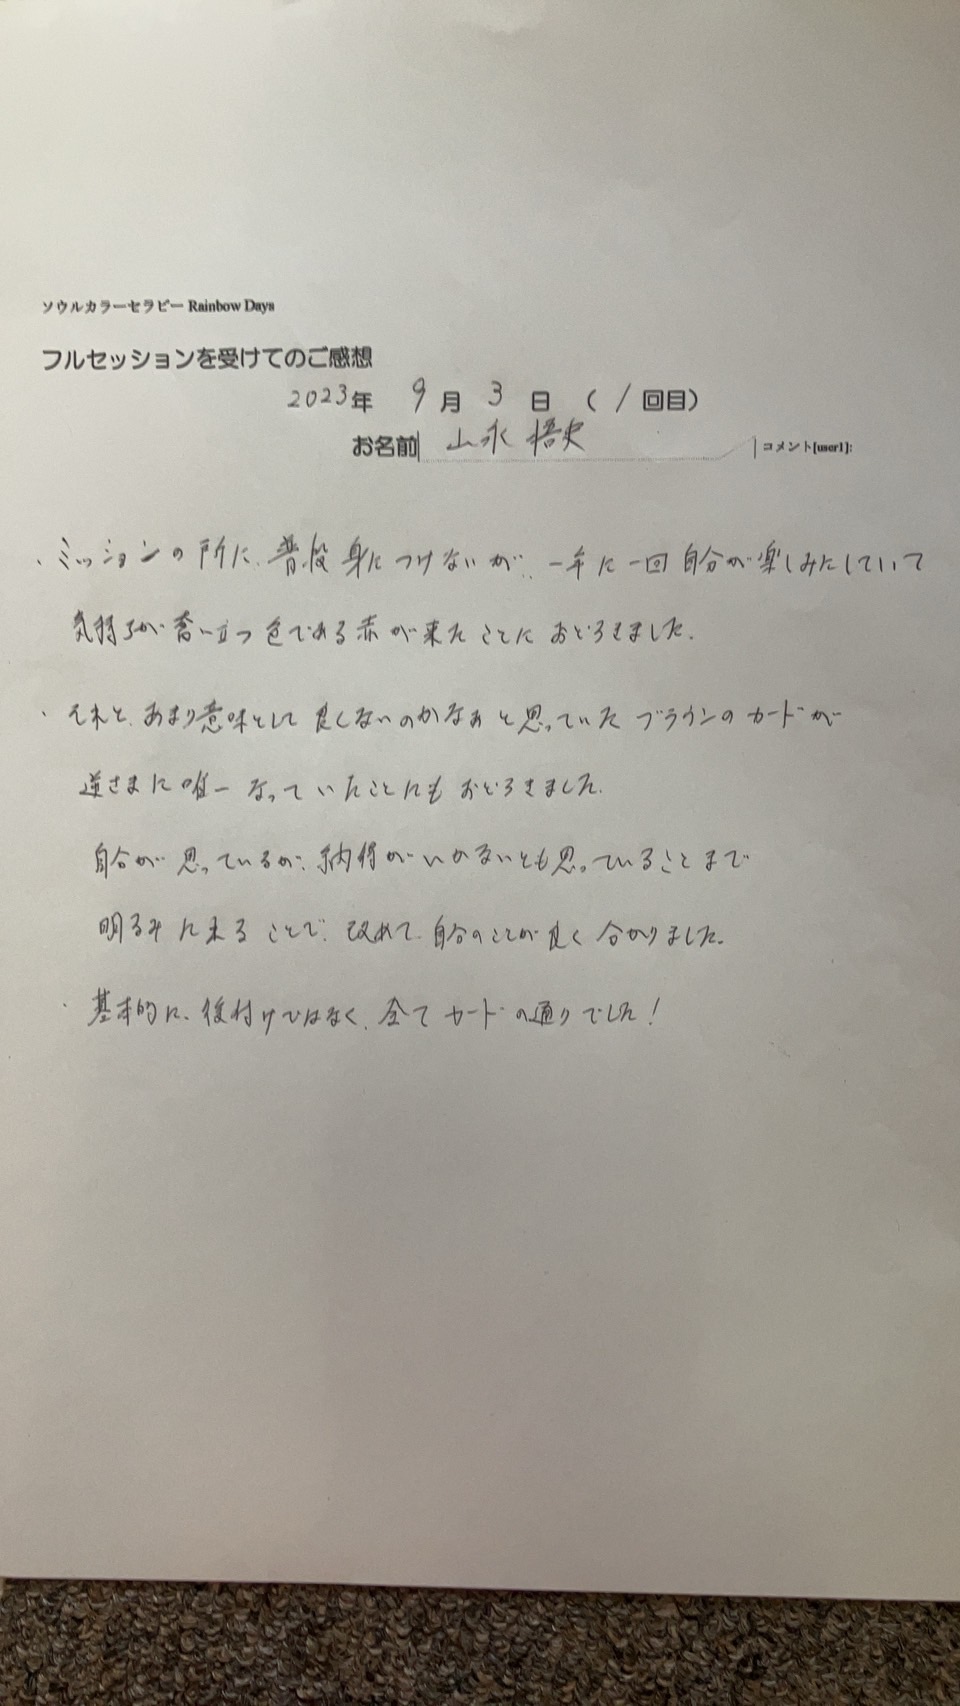 ソウルカラーセラピー Rainbow Days
フルセッションを受けてのご感想
2023年 9月 3日 ( 1回目)
お名前 山永 悟史 コメント[user1]:
・ミッションの所に、普段身につけないが、一年に一回自分が楽しみにしていて
気持ちが奮い立つ色である赤が来たことにおどろきました。
・それと、あまり意味として良くないのかなぁと思っていたブラウンのカードが
逆さまに唯一なっていたことにもおどろきました。
自分が思っているが、納得がいかないとも思っていることまで
明るみに来ることで、改めて自分のことが良く分かりました。
・基本的に、後付けではなく、全てカードの通りでした!